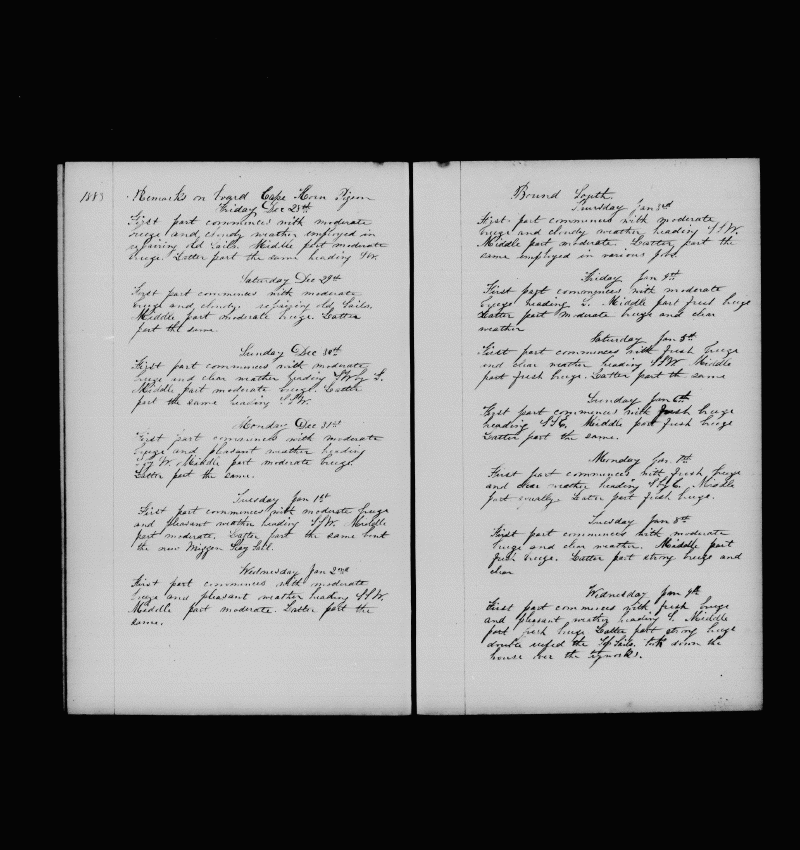 1883
Remarks on board Cape Horn Pigeon
Friday Dec 28th
First part commences with moderate
breeze and cloudy weather employed in
repairing old sails. Middle part moderate
breeze. Latter part the same heading SW.
Saturday Dec 29th
First part commences with moderate
breeze and cloudy. repairing old Sails.
Middle part moderate breeze. Latter
part the same.
Sunday Dec 30th
First part commences with moderate
breeze and clear weather heading SW by S.
Middle part moderate breeze. Latter
part the same heading SSW.
Monday Dec 31st
First part commences with moderate
breeze and pleasant weather heading
W. Middle part moderate breeze.
Latter part the same.
Tuesday Jan 1st
First part commences with moderate breeze
and pleasant weather heading SSW. Middle
part moderate. Latter part the same bent
the new Mizzen Stay Sail.
Wednesday Jan 2nd
First part commences with moderate
breeze and pleasant weather heading SSW.
Middle part moderate. Latter part the
same.
Bound South
Thursday Jan 3rd
First part commences with moderate
breeze and cloudy weather, heading SSW.
Middle part moderate. Latter part the
same employed in various jobs.
Friday Jan 4th
First part commences with moderate
breeze heading S. Middle part fresh breeze
Latter part moderate breeze and clear
weather
Saturday Jan 5th
First part commences with fresh breeze
and clear weather heading SSW. Middle
part fresh breeze. Latter part the same
Sunday Jan 6th
First part commences with fresh breeze
heading SSE. Middle part fresh breeze
Latter part the same.
Monday Jan 7th
First part commences with fresh breeze
and clear weather heading SSE. Middle
part squally. Latter part fresh breeze.
Tuesday Jan 8th
First part commences with moderate
breeze and clear weather. Middle part
fresh breeze. Latter part strong breeze and
clear
Wednesday Jan 9th
First part commences with fresh breeze
and pleasant weather heading S. Middle
part fresh breeze Latter part strong breeze
double reefed the Top Sails. took down the
house over the tryworks.